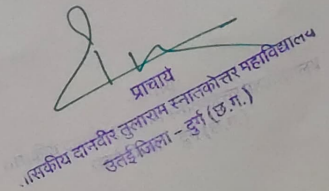 प्राचार्य
ासकीय दानवीर तुलाराम स्नातकोत्तर महाविद्यालय
उतई जिला - दुर्ग (छ.ग.)